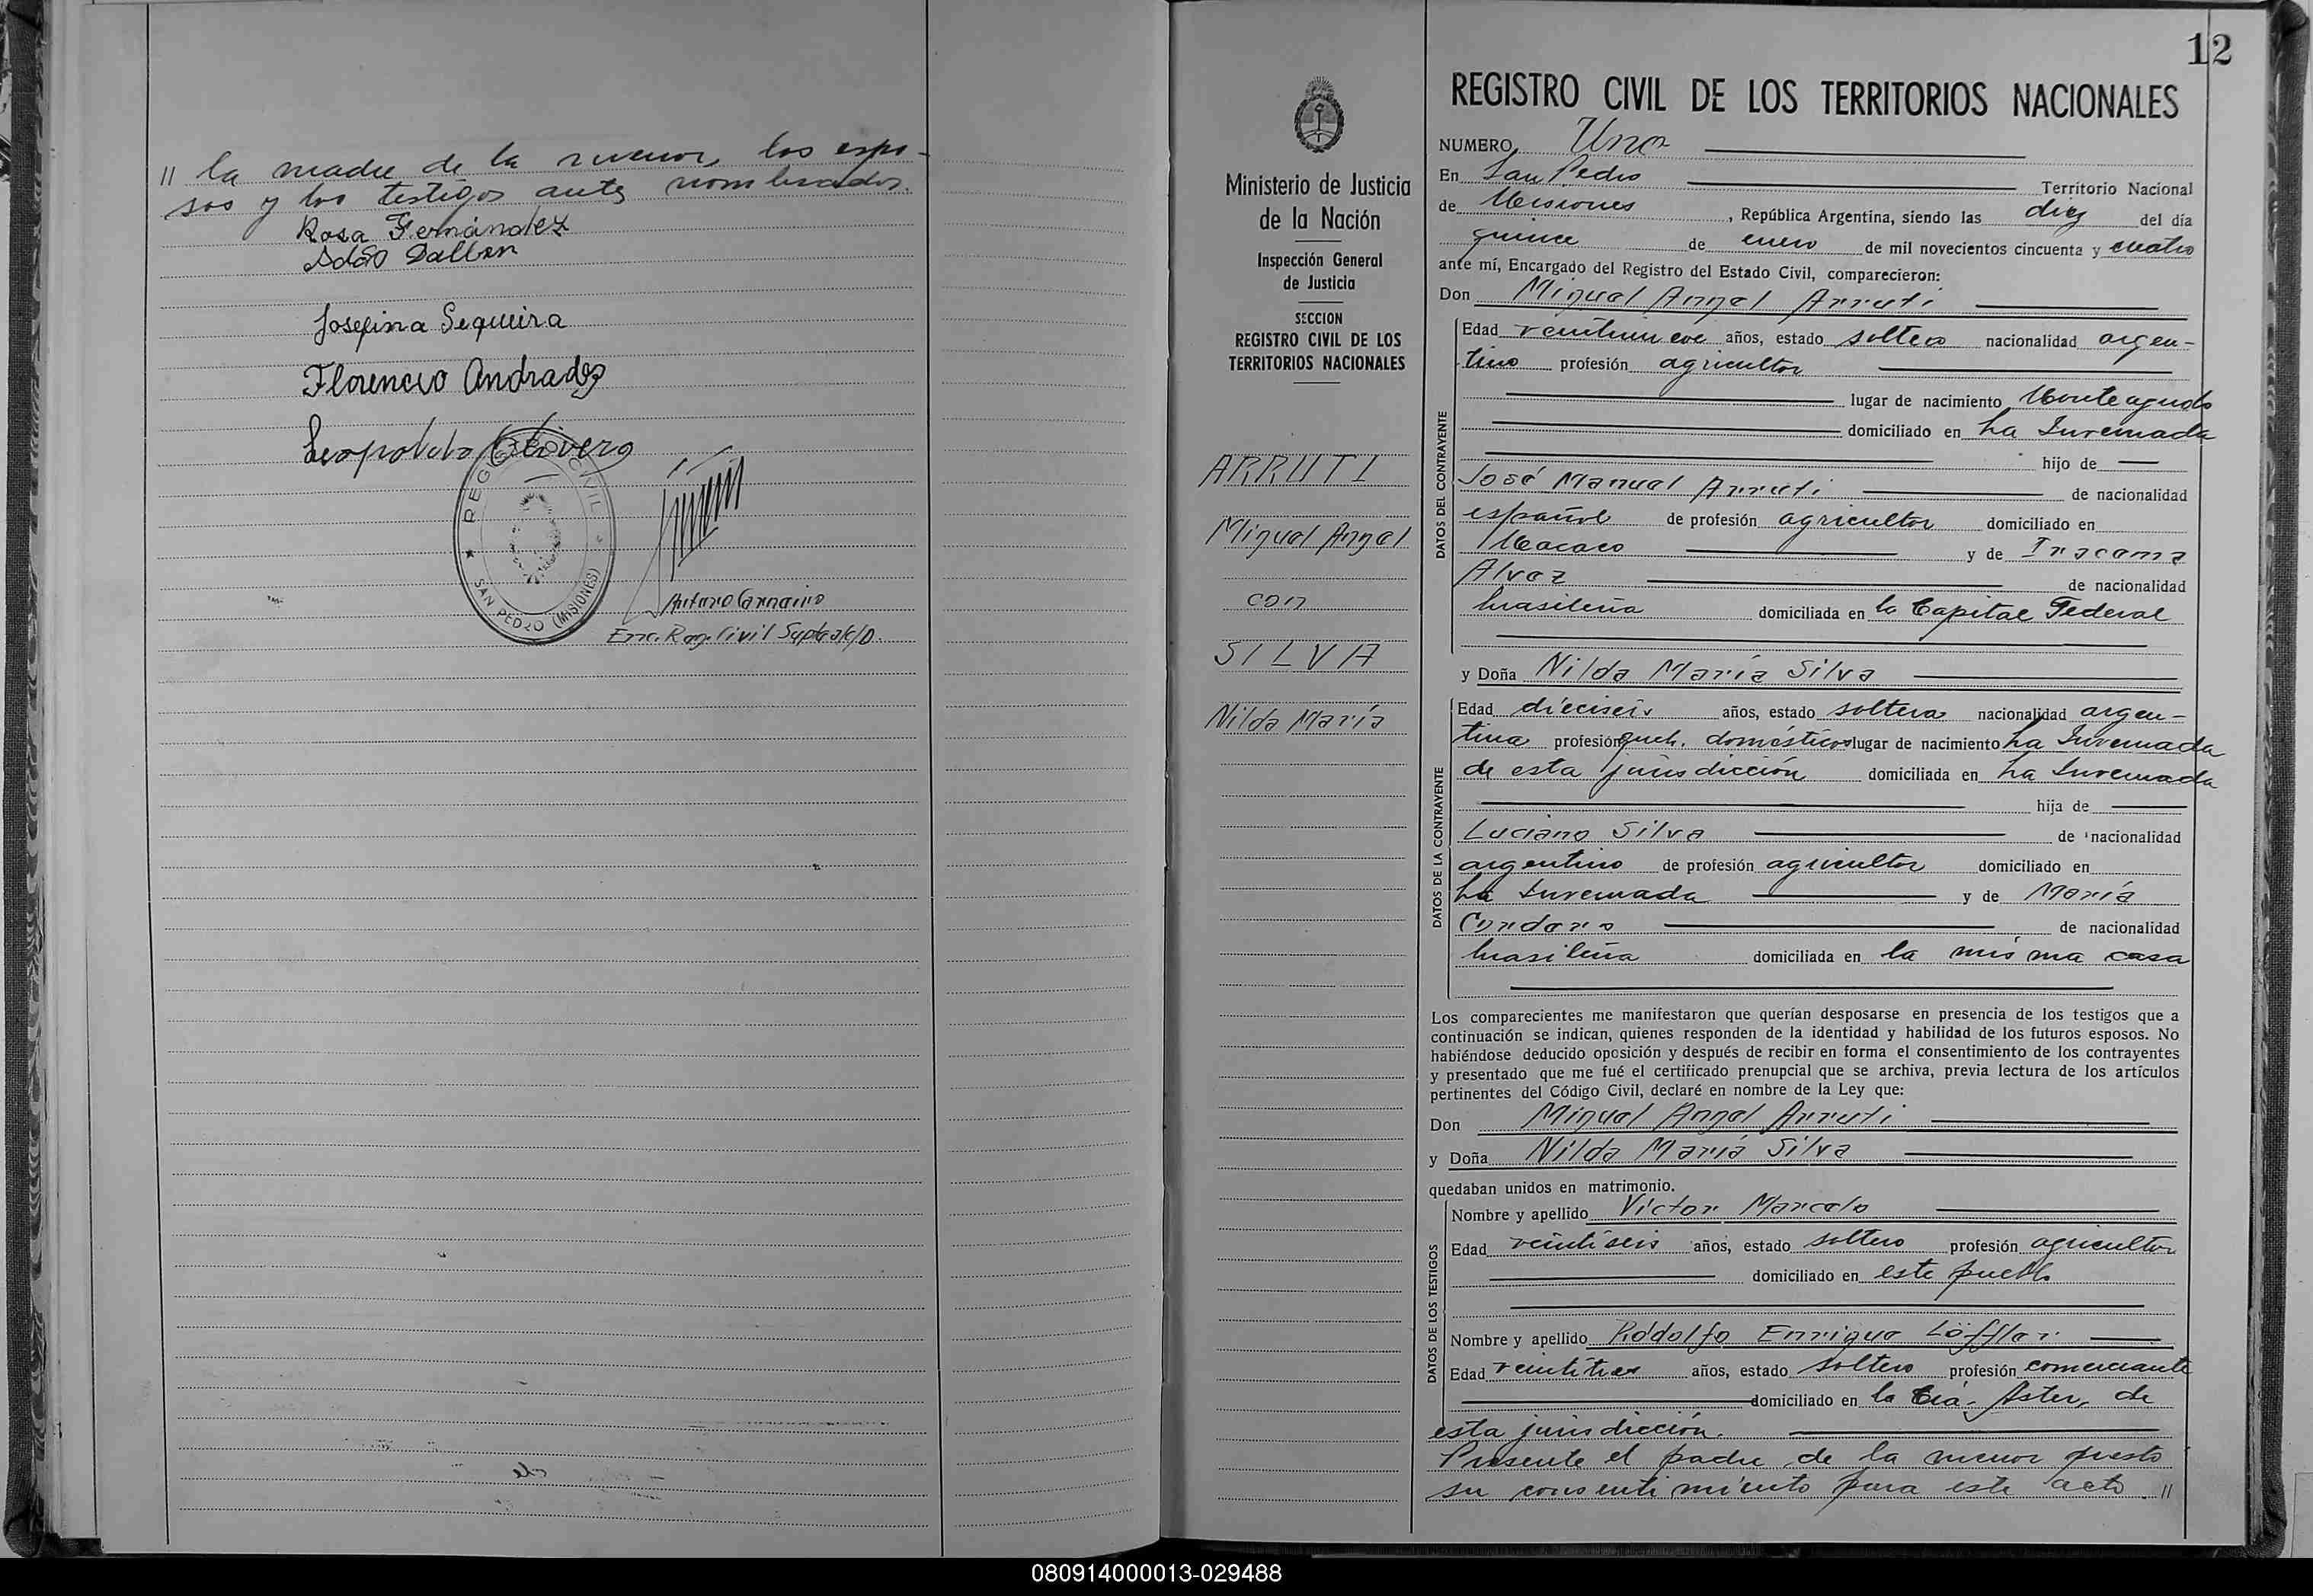 // la madre de la menor, los espo-
sos y los testigos antes nombrados.
Rosa Fernández
Adão Dalben
Josefina Sequeira
Florencio Andrades
Leopoldo Olivera
REGISTRO CIVIL
★ SAN PEDRO (MISIONES)
Arturo
Enc. Reg. Civil Supte a/c/D.
12
REGISTRO CIVIL DE LOS TERRITORIOS NACIONALES
Ministerio de Justicia
de la Nación
Inspección General
de Justicia
SECCION
REGISTRO CIVIL DE LOS
TERRITORIOS NACIONALES
ARRUTI
Miguel Angel
con
SILVA
Nilda María
NUMERO Uno
En San Pedro Territorio Nacional
de Misiones, República Argentina, siendo las diez del día
quince de enero de mil novecientos cincuenta y cuatro
ante mí, Encargado del Registro del Estado Civil, comparecieron:
Don Miguel Angel Arruti
DATOS DEL CONTRAYENTE
Edad veintinueve años, estado soltero nacionalidad argen-
tino profesión agricultor
lugar de nacimiento Monteagudo
domiciliado en La Invernada
hijo de
José Manuel Arruti de nacionalidad
español de profesión agricultor domiciliado en
Macaco y de Iracema
Alvez de nacionalidad
brasileña domiciliada en la Capital Federal
y Doña Nilda María Silva
DATOS DE LA CONTRAYENTE
Edad dieciseis años, estado soltera nacionalidad argen-
tina profesión queh. domésticos lugar de nacimiento La Invernada
de esta jurisdicción domiciliada en La Invernada
hija de
Luciano Silva de nacionalidad
argentino de profesión agricultor domiciliado en
La Invernada y de María
de nacionalidad
brasileña domiciliada en la misma casa
Los comparecientes me manifestaron que querían desposarse en presencia de los testigos que a
continuación se indican, quienes responden de la identidad y habilidad de los futuros esposos. No
habiéndose deducido oposición y después de recibir en forma el consentimiento de los contrayentes
y presentado que me fué el certificado prenupcial que se archiva, previa lectura de los artículos
pertinentes del Código Civil, declaré en nombre de la Ley que:
Don Miguel Angel Arruti
y Doña Nilda María Silva
quedaban unidos en matrimonio.
DATOS DE LOS TESTIGOS
Nombre y apellido Víctor Marcelo
Edad veintiseis años, estado soltero profesión agricultor
domiciliado en este pueblo
Nombre y apellido Rodolfo Enrique Löffler
Edad veintitres años, estado soltero profesión comerciante
domiciliado en la Cía. Aster, de
esta jurisdicción.
Presente el padre de la menor presto
su consentimiento para este acto. //
080914000013-029488